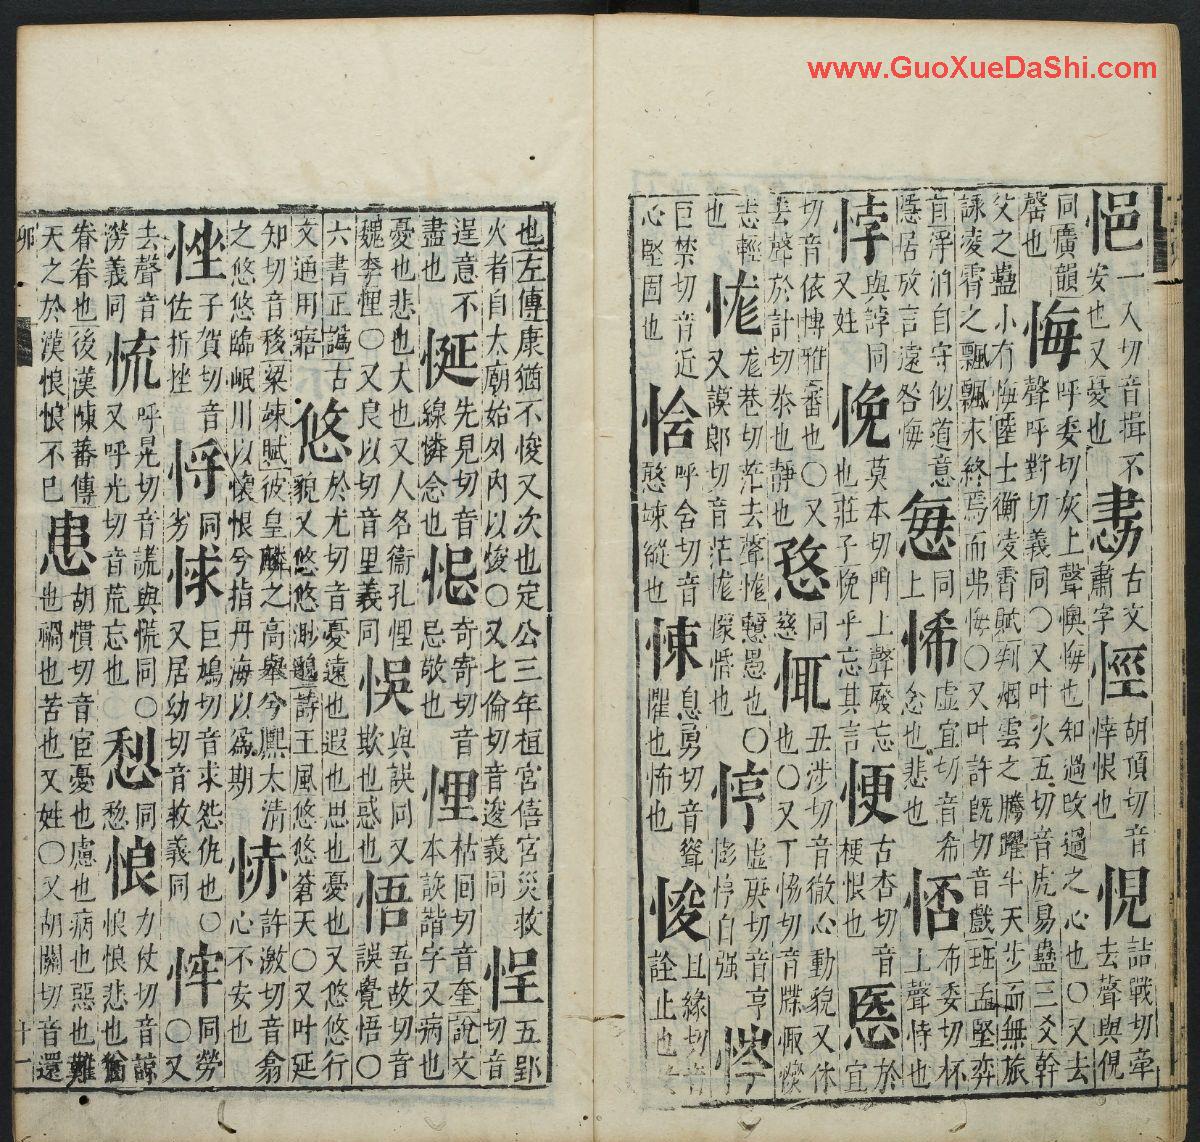 悒一入切音揖不安也又憂也 古文肅字 胡頂切音悻恨也 悓詰戰切牽去聲與俔同廣韻
罄也 悔呼委切灰上聲懊悔也知過改過之心也〇又去聲呼對切義同〇又叶火五切音虎易蠱三爻幹
父之蠱小有悔陸士衡凌霄賦判烟雲之騰躍半天步而無旅詠凌霄之飄飄永終焉而弗悔〇又叶許旣切音戲班孟堅弈
旨浮泊自守似道意隱居放言遠咎悔 同上 悕虛宜切音希念也悲也 布委切杯上聲恃也
悖與誖同又姓 悗莫本切門上聲廢忘也莊子悗乎忘其言 古杏切音梗恨也 於宜
切音依博雅審也〇又去聲於計切泰也靜也 同慈 丑涉切音徹心動貌又休也〇又丁恊切音牒㥈㥈
志輕也 㤶尨巷切茫去聲㤶戇愚也〇又謨郎切音茫㤶㦖悟也 悙虛庚切音亨㤃悙自强
巨禁切音近心堅固也 呼舍切音憨竦縱也 悚息勇切音聳懼也怖也 悛且緣切音詮止也
也左傳康猶不悛又次也定公三年桓宮僖宮災救火者自太廟始外內以悛〇又七倫切音逡義同 悜五郢切音
逞意不盡也 㦓先見切音線憐念也 㤅奇寄切音忌敬也 悝枯回切音奎說文本詼諧字又病也
憂也悲也大也又人名衞孔悝魏李悝〇又良以切音里義同 悞與誤同又欺也惑也 悟吾故切音誤覺悟〇
六書正譌古文通用寤 悠於尤切音憂遠也遐也思也憂也又悠悠行貌又悠悠渺邈詩王風悠悠蒼天〇又叶延
知切音移梁竦賦彼皇麟之高舉兮熙太清之悠悠臨岷川以懷恨兮指丹海以爲期 許激切音翕心不安也
子賀切音佐折挫 同劣 巨鳩切音求怨仇也〇又居幼切音救義同 同勞〇又
去聲音澇義同 㤺呼晃切音謊與慌同〇又呼光切音荒忘也 同愁 悢力仗切音諒悢悢悲也猶
眷眷也後漢陳蕃傳天之於漢悢悢不已 患胡慣切音宦憂也慮也病也惡也難也禍也苦也又姓〇又胡關切音還
卯
十一
www.GuoXueDaShi.com